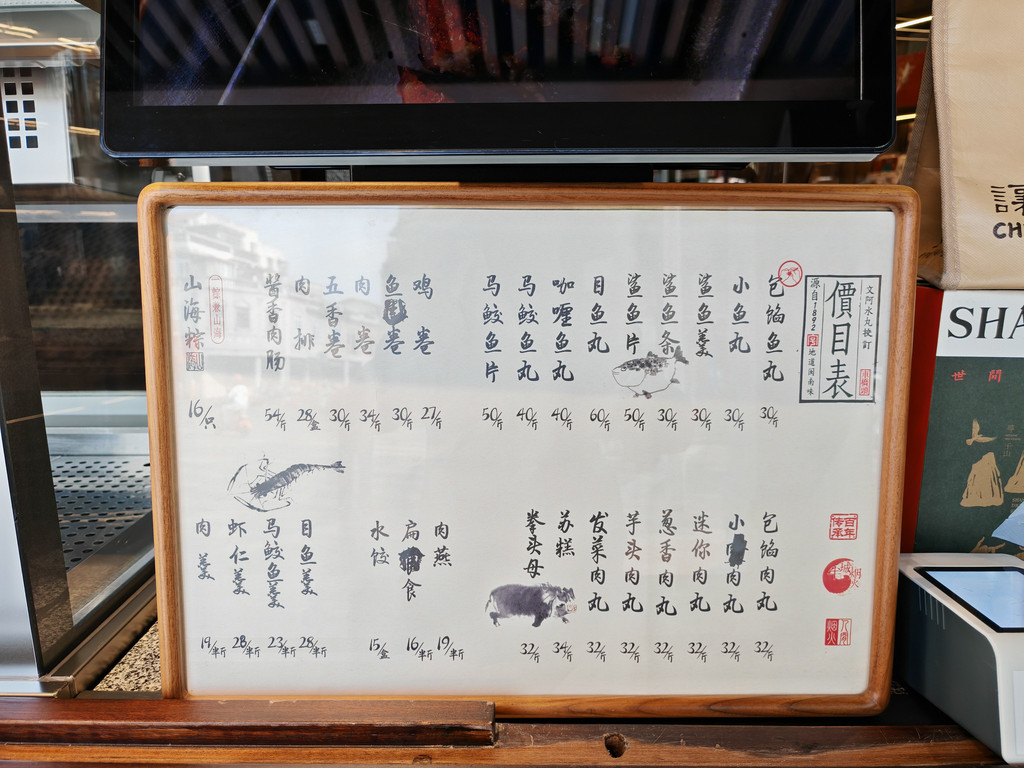 文阿水丸校訂
價目表
源自1892
地道闽南味
包馅鱼丸 30/斤
小鱼丸 30/斤
鲨鱼羹 30/斤
鲨鱼条 30/斤
鲨鱼片 50/斤
目鱼丸 60/斤
咖喱鱼丸 40/斤
马鲛鱼丸 40/斤
马鲛鱼片 50/斤
鸡卷 27/斤
鱼卷 30/斤
肉卷 34/斤
五香卷 30/斤
肉排 28/盒
酱香肉肠 54/斤
山海粽 16/只
百年传承
包馅肉丸 32/斤
小肉丸 32/斤
迷你肉丸 32/斤
葱香肉丸 32/斤
芋头肉丸 32/斤
发菜肉丸 32/斤
苏糕 34/斤
拳头母 32/斤
肉燕 19/半斤
扁食 16/半斤
水饺 15/盒
目鱼羹 28/半斤
马鲛鱼羹 23/半斤
虾仁羹 28/半斤
肉羹 19/半斤
讓
CH
SHA
世間